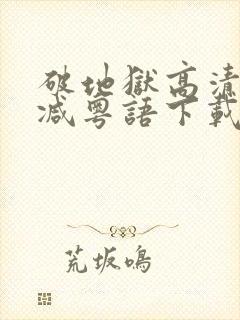 破地獄高清
减粵語下載
荒坂鳴